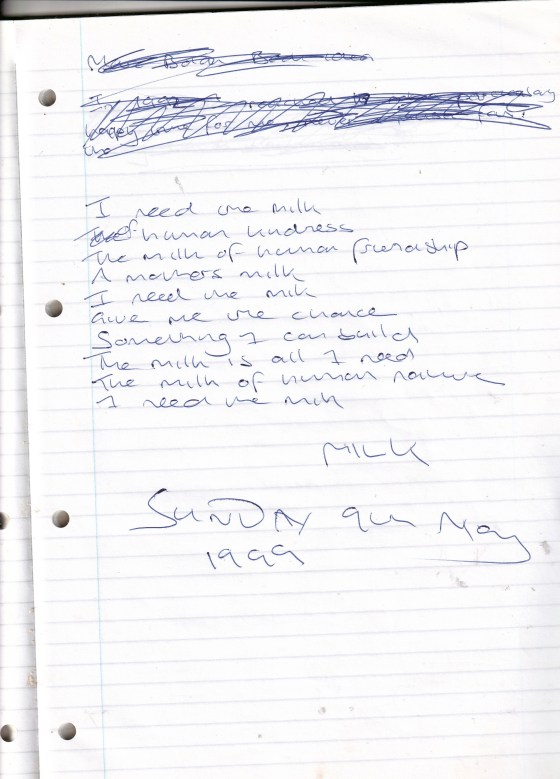 I need the milk
of human kindness
The milk of human friendship
A mothers milk
I need the milk
Give me the chance
Something I can build
The milk is all I need
The milk of human nature
I need the milk
MILK
SUNDAY 9th May
1999